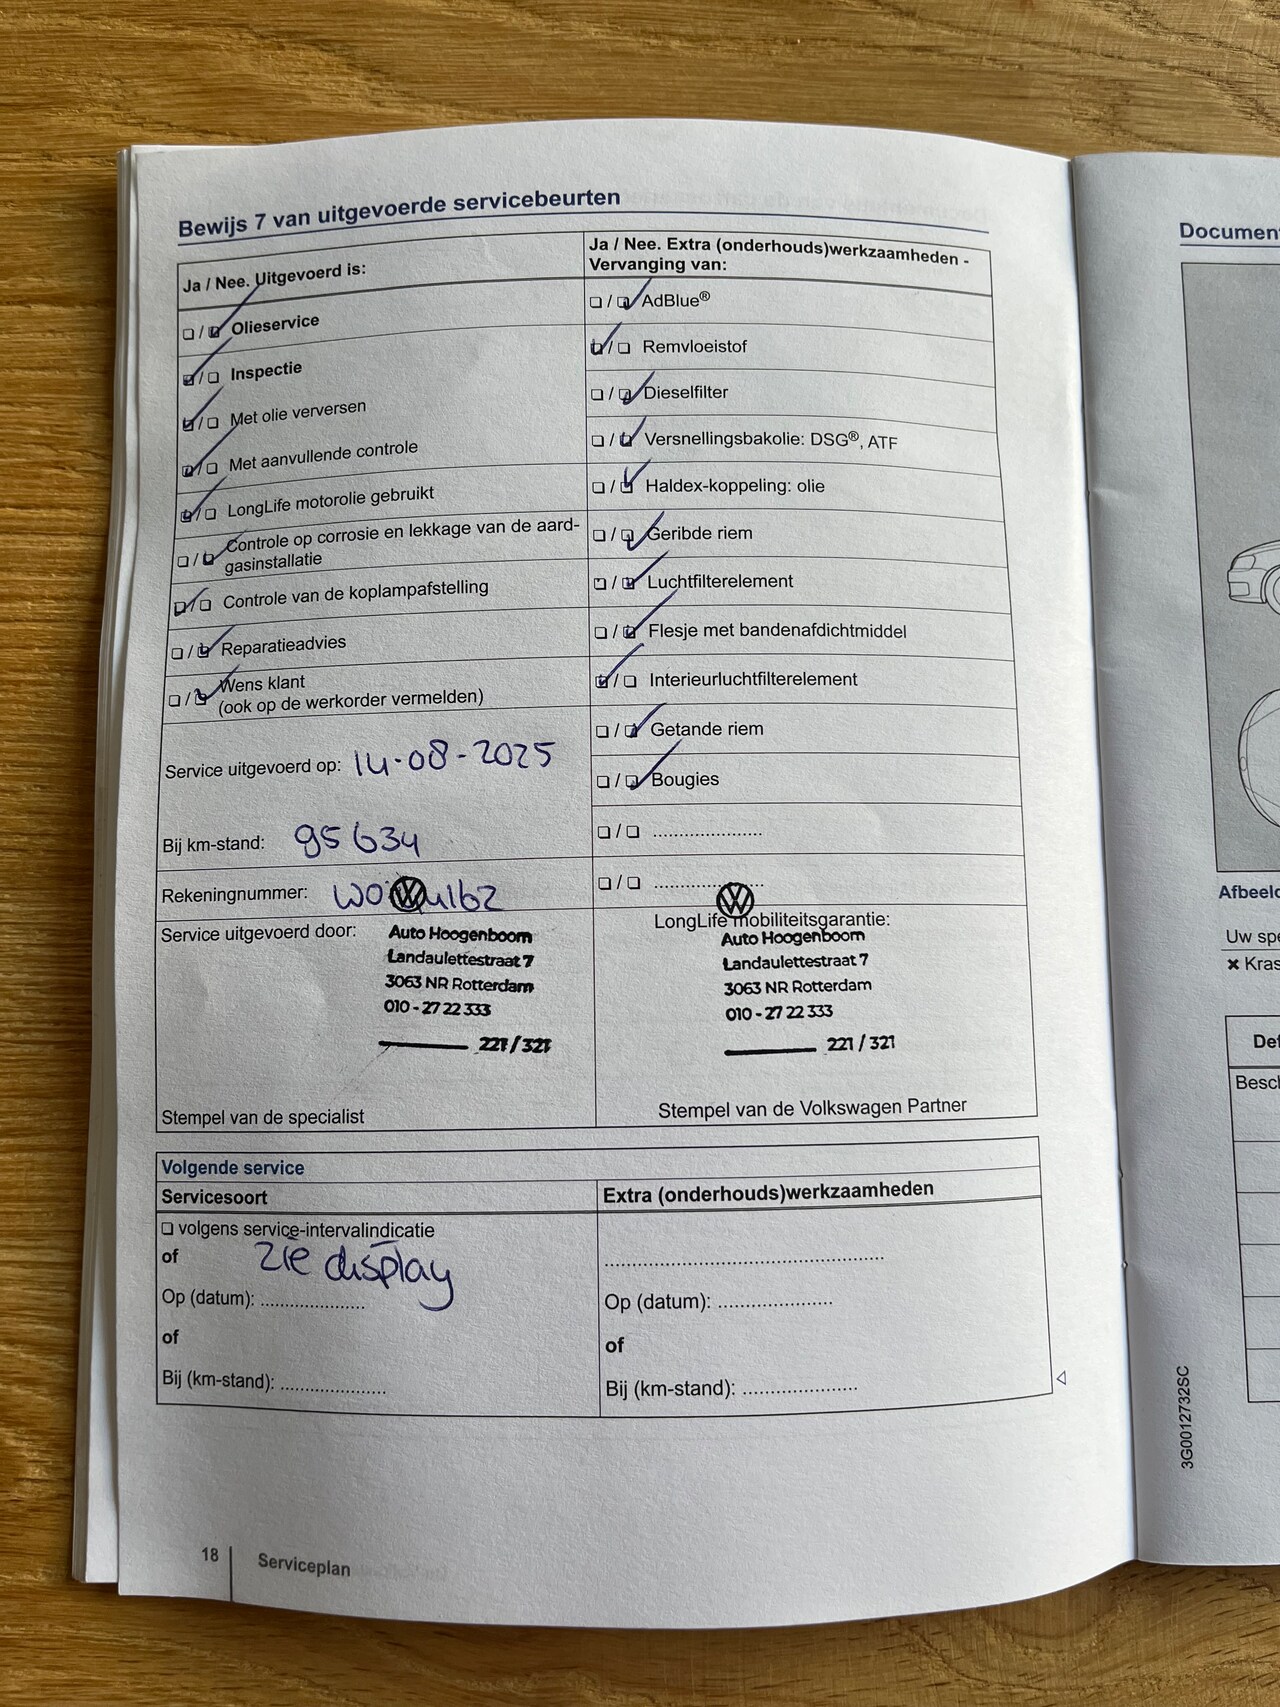 Bewijs 7 van uitgevoerde servicebeurten
Ja / Nee. Uitgevoerd is:
❏ / ❏ Olieservice
❏ / ❏ Inspectie
❏ / ❏ Met olie verversen
❏ / ❏ Met aanvullende controle
❏ / ❏ LongLife motorolie gebruikt
❏ / ❏ Controle op corrosie en lekkage van de aard-
gasinstallatie
❏ / ❏ Controle van de koplampafstelling
❏ / ❏ Reparatieadvies
❏ / ❏ Wens klant
(ook op de werkorder vermelden)
Service uitgevoerd op: 14-08-2025
Bij km-stand: 95634
Rekeningnummer:
Service uitgevoerd door:
Auto Hoogenboom
Landaulettestraat 7
3063 NR Rotterdam
010 - 27 22 333
221 / 321
Stempel van de specialist
Ja / Nee. Extra (onderhouds)werkzaamheden -
Vervanging van:
❏ / ❏ AdBlue®
❏ / ❏ Remvloeistof
❏ / ❏ Dieselfilter
❏ / ❏ Versnellingsbakolie: DSG®, ATF
❏ / ❏ Haldex-koppeling: olie
❏ / ❏ Geribde riem
❏ / ❏ Luchtfilterelement
❏ / ❏ Flesje met bandenafdichtmiddel
❏ / ❏ Interieurluchtfilterelement
❏ / ❏ Getande riem
❏ / ❏ Bougies
❏ / ❏ ......................
❏ / ❏ ......................
LongLife mobiliteitsgarantie:
Auto Hoogenboom
Landaulettestraat 7
3063 NR Rotterdam
010 - 27 22 333
221 / 321
Stempel van de Volkswagen Partner
Volgende service
Servicesoort
❏ volgens service-intervalindicatie
of zie display
Op (datum): .....................
of
Bij (km-stand): .....................
Extra (onderhouds)werkzaamheden
........................................................
Op (datum): .......................
of
Bij (km-stand): .......................
18 Serviceplan
Document
Afbeeld
Uw spe
✖ Kras
Def
Besch
3G0012732SC